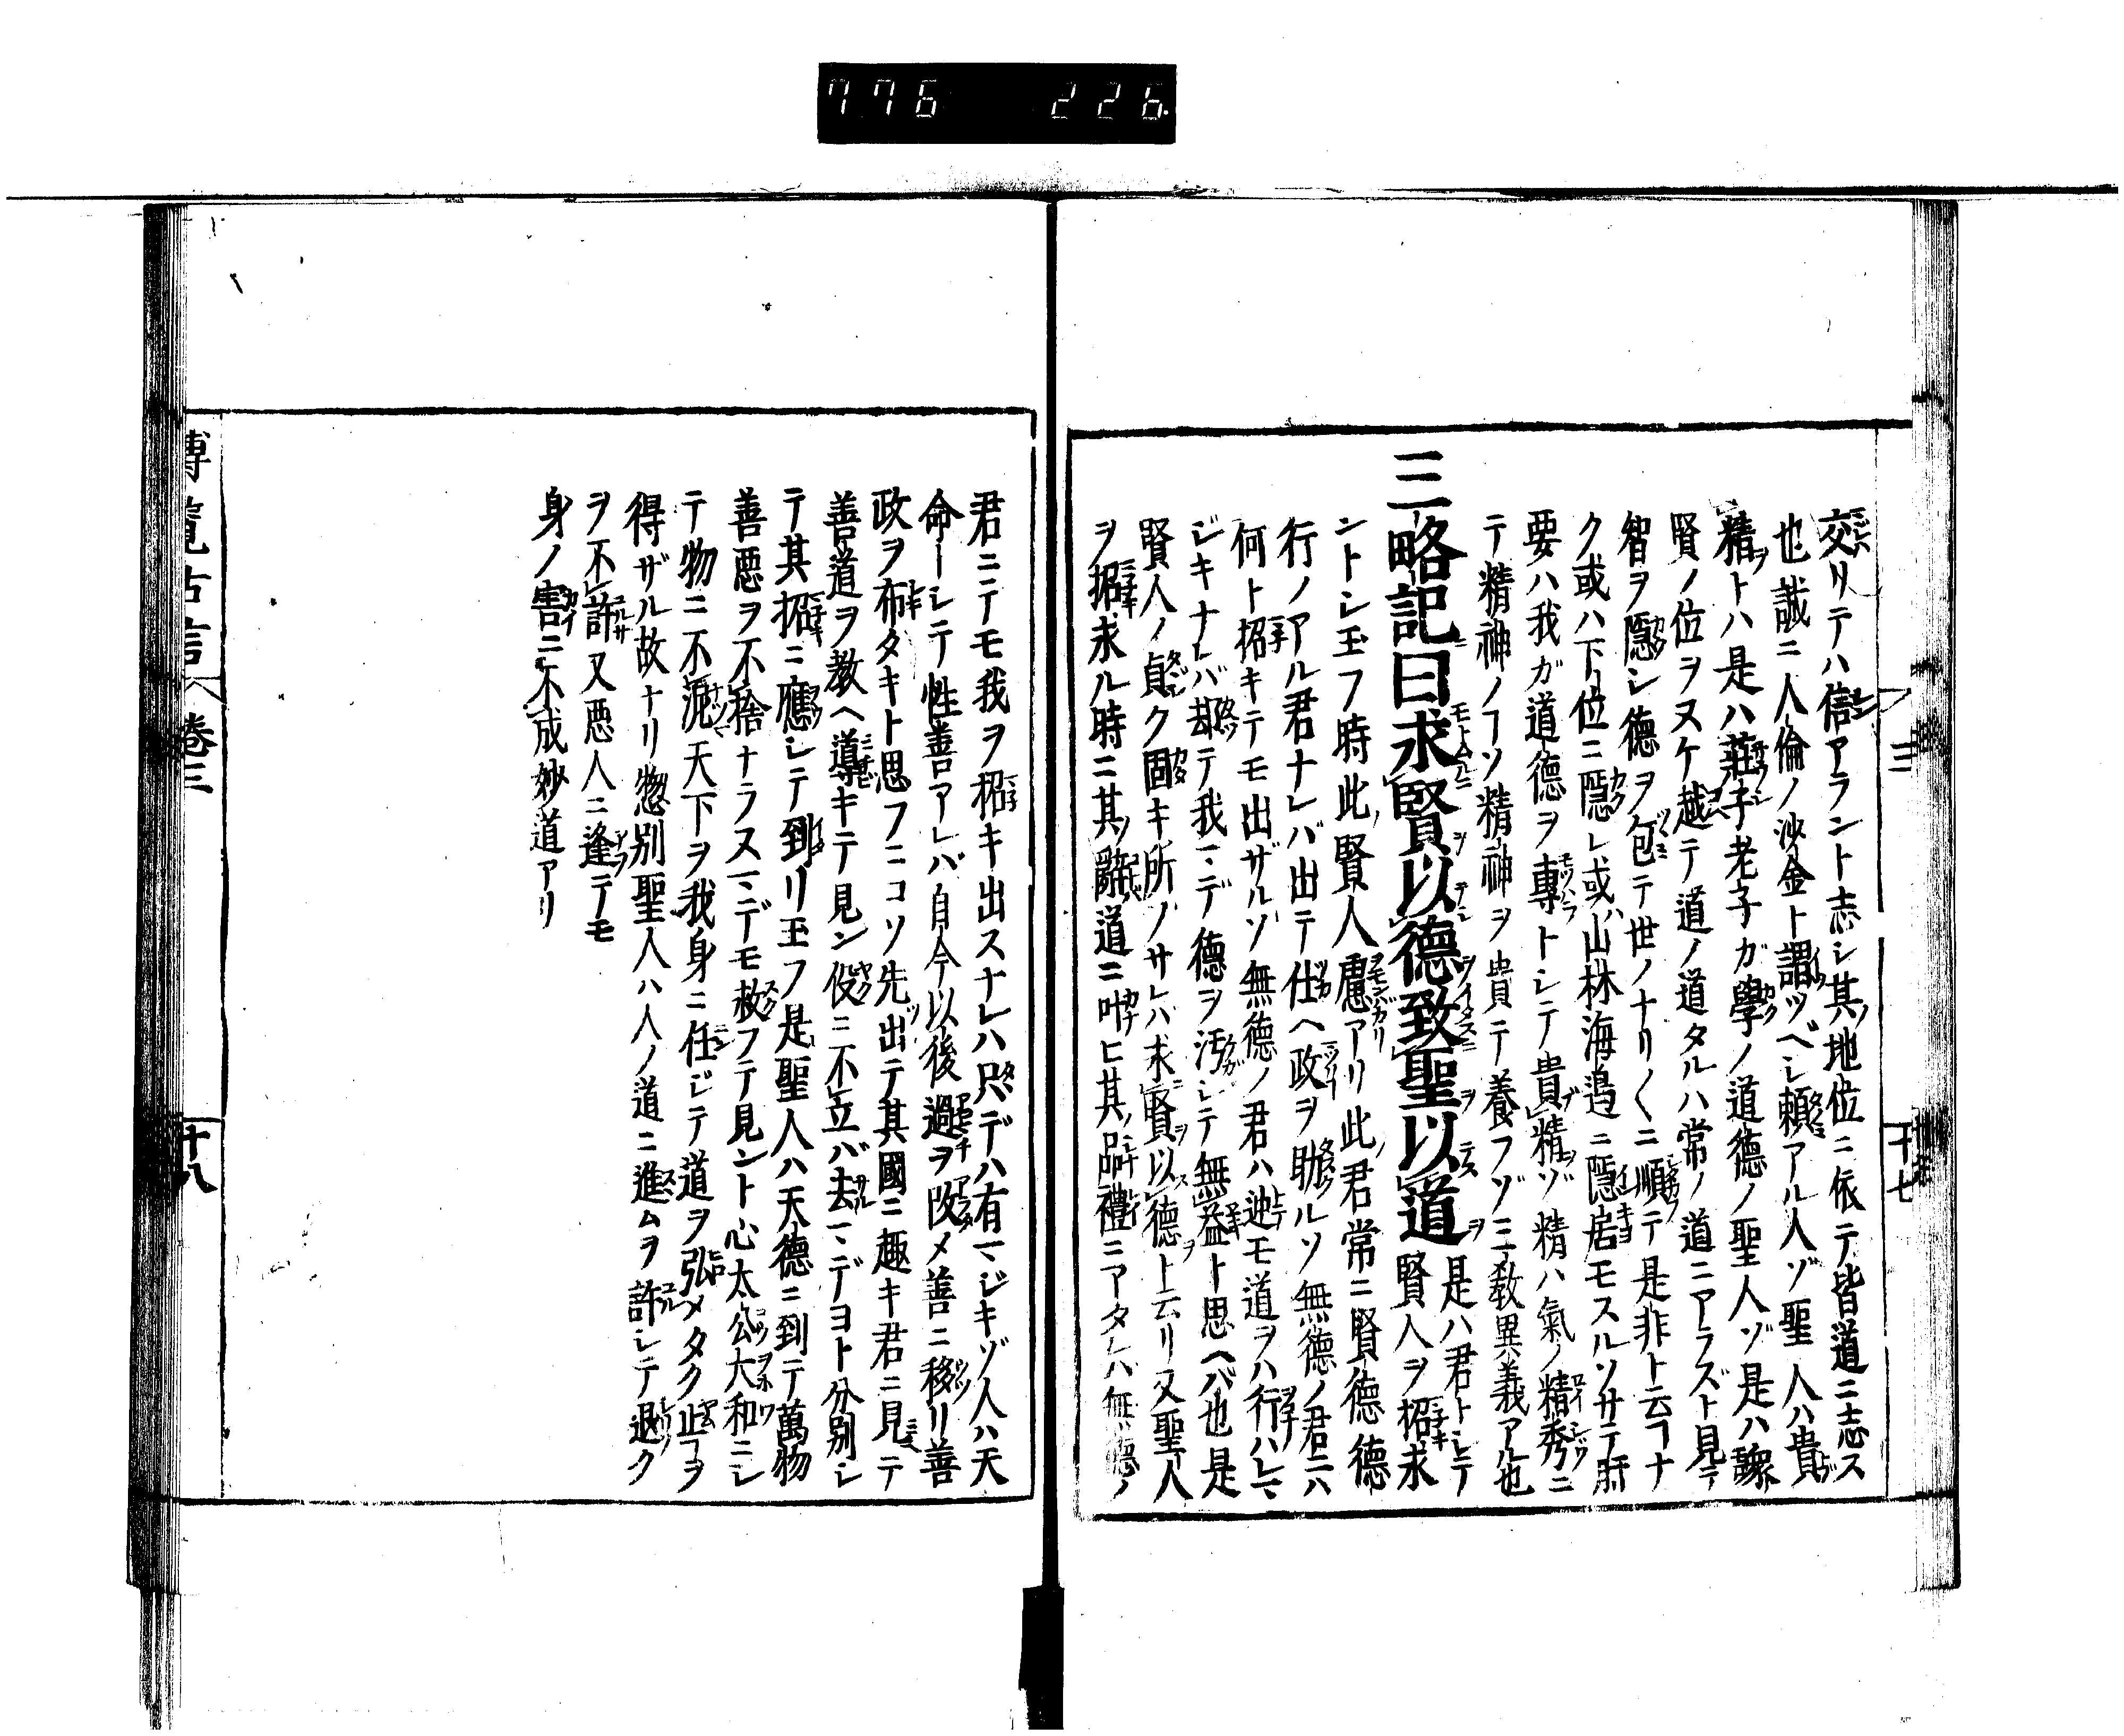 776 226
三
十七
交リテハ信アラント志シ其ノ地位ニ依テ皆道ニ志ス
也誠ニ人倫ノ沙金ト謂ツベシ頼アル人ゾ聖人ハ貴
精ヲトハ是ハ莊子老子ガ學ノ道德ノ聖人ゾ是ハ諸
賢ノ位ヲヌケ越テ道ノ道タルハ常ノ道ニアラズト見テ
智ヲ隱シ德ヲ包テ世ノナリ〳〵ニ順テ是非ト云ヿナ
ク或ハ下位ニ隱レ或ハ山林海邉ニ隱居モスルソサテ肝
要ハ我ガ道德ヲ專トシテ貴精ゾ精ハ氣ノ精秀ニ
テ精神ノヿソ精神ヲ貴テ養フゾ三教異義アル也
三略記曰求賢以德致聖以道 是ハ君トシテ賢人ヲ招求
ントシ玉フ時此ノ賢人慮アリ此ノ君常ニ賢德德
行ノアル君ナレバ出テ仕ヘ政ヲ助ルソ無德ノ君ニハ
何ト招キテモ出ザルソ無德ノ君ハ迚モ道ヲハ行ハレマ
ジキナレバ却テ我マデ德ヲ汚シテ無益ト思ヘバ也是
賢人ノ貞ク固キ所ノサレハ求賢以德ト云リ又聖人
ヲ招求ル時ニ其ノ辭道ニ叶ヒ其ノ品禮ニアタレバ無德ノ
君ニテモ我ヲ招キ出スナレハ只デハ有マジキゾ人ハ天
命ーシテ性善ナレバ自今以後過ヲ改メ善ニ移リ善
政ヲ布タキト思フニコソ先出テ其國ニ趣キ君ニ見テ
善道ヲ教ヘ導キテ見ン役ニ不立バ去マデヨト分別シ
テ其招ニ應シテ到リ玉フ是聖人ハ天德ニ到テ萬物
善悪ヲ不捨ナラヌマデモ救フテ見ント心太公大和ニシ
テ物ニ不泥天下ヲ我身ニ任ジテ道ヲ弘メタク止ヿヲ
得ザル故ナリ惣別聖人ハ人ノ道ニ進ムヲ許シテ退ク
ヲ不許又悪人ニ逢テモ
身ノ害ニ不成妙道アリ
博覽古言 卷三
十八